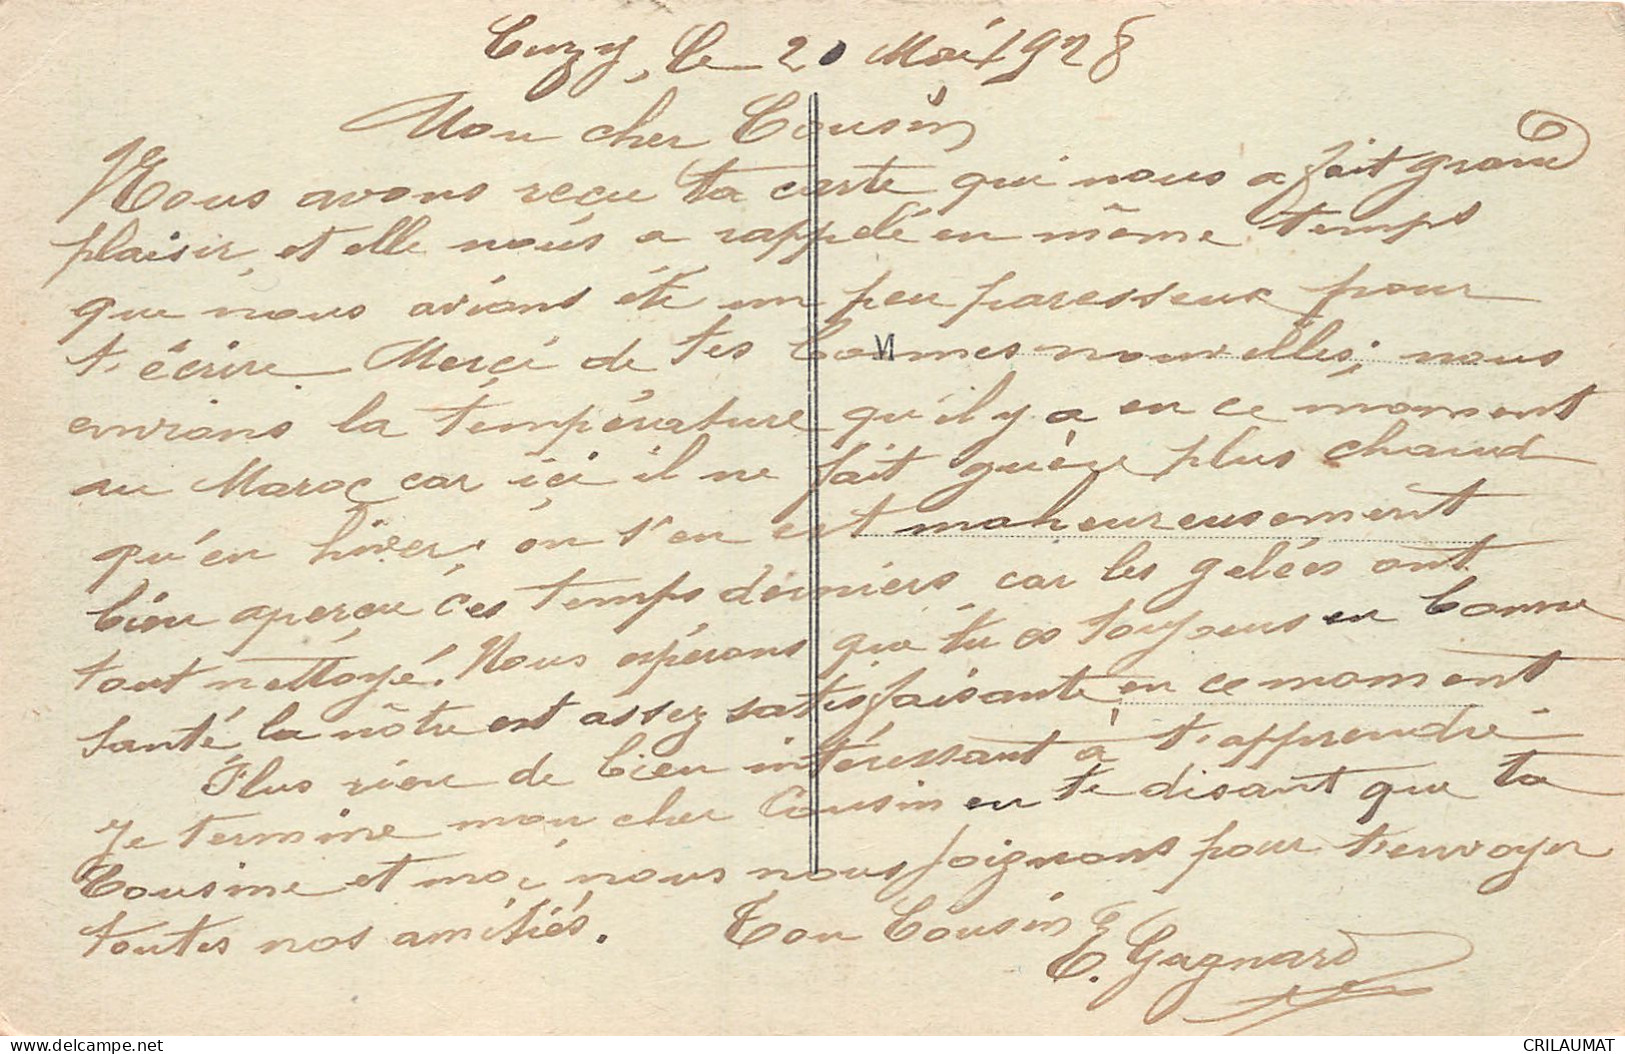 Cuzy, le 20 Mai 1928
Mon cher Cousin
Nous avons reçu ta carte qui nous a fait grand
plaisir, et elle nous a rappelé en même temps
que nous avions été un peu paresseux pour
t'écrire. Merci de tes bonnes nouvelles; nous
envions la température qu'il y a en ce moment
au Maroc car ici il ne fait guère plus chaud
qu'en hiver, on s'en est malheureusement
bien aperçu ces temps derniers car les gelées ont
tout nettoyé. Nous espérons que tu es toujours en bonne
santé, la nôtre est assez satisfaisante en ce moment
Plus rien de bien intéressant à t'apprendre
Je termine mon cher Cousin en te disant que ta
Cousine et moi, nous nous joignons pour t'envoyer
toutes nos amitiés. Ton Cousin
C. Gagnard
delcampe.net
CRILAUMAT